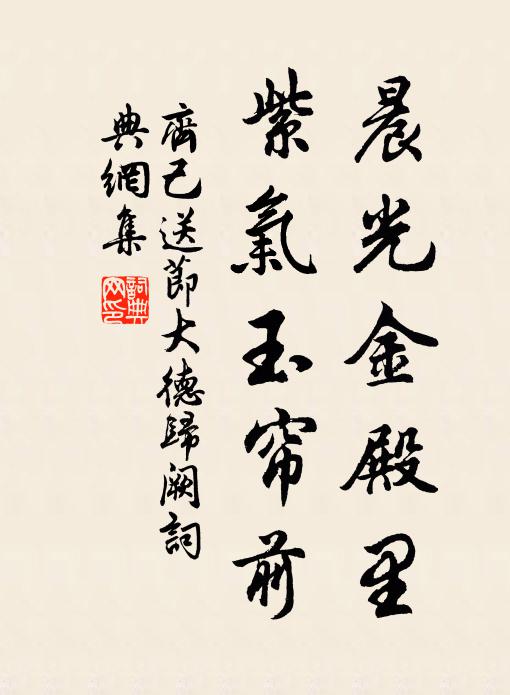 晨光金殿里
紫氣玉帘前
齊己送節大德歸闕詞
典網集
詞典网印